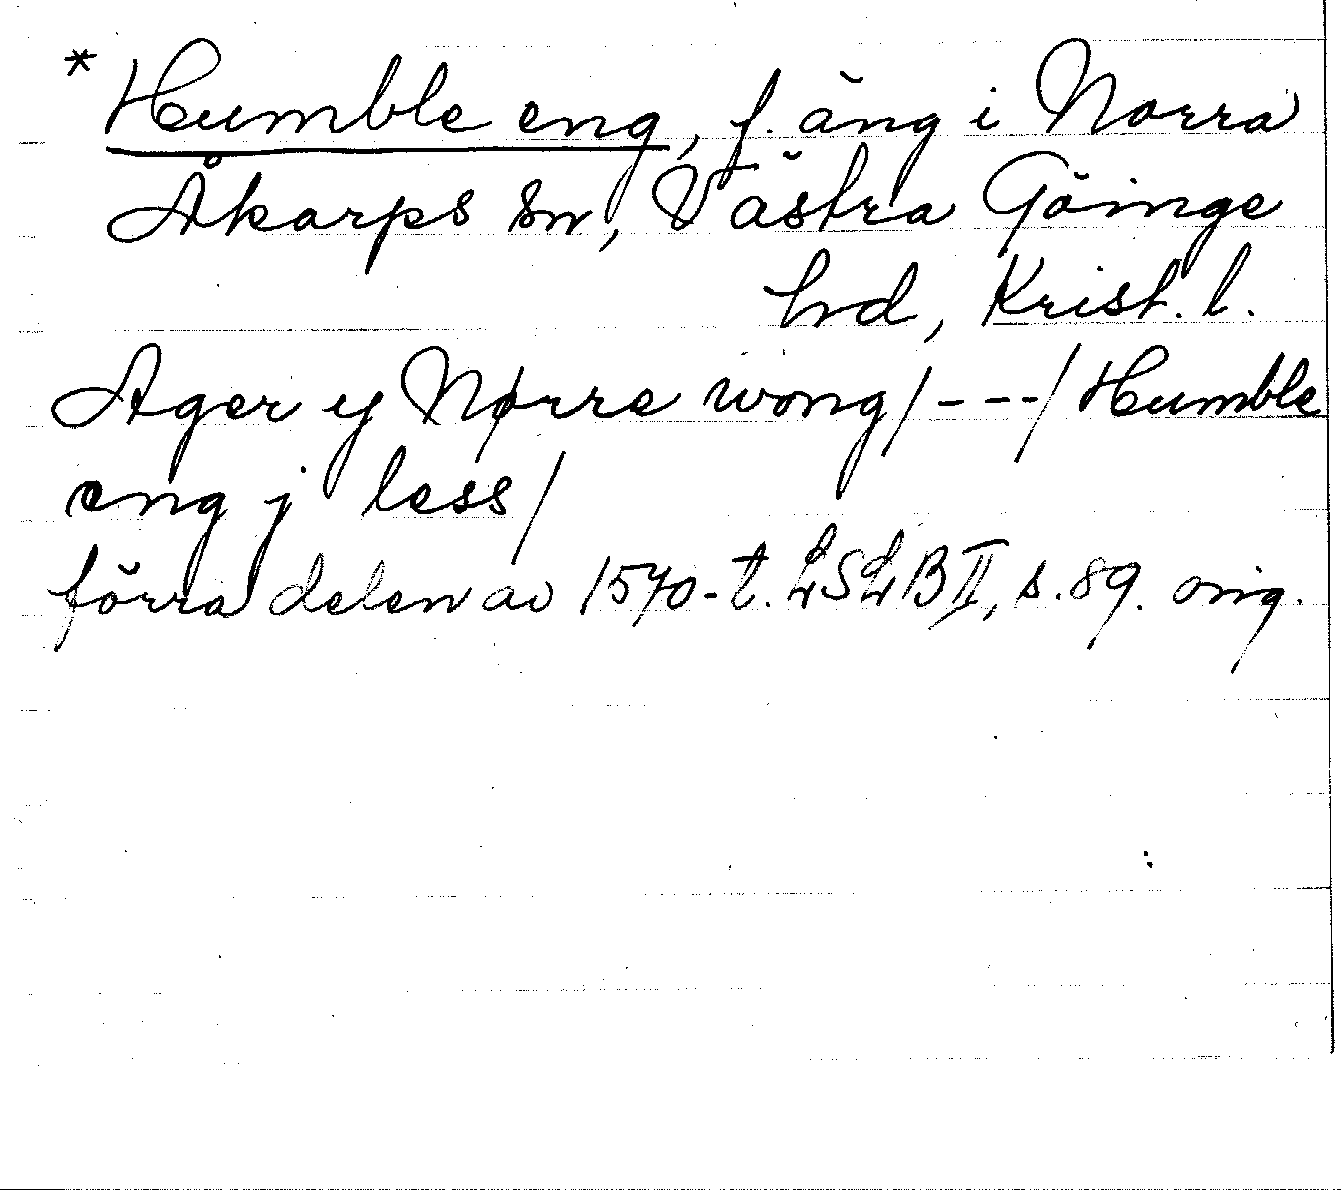 * Humble eng, f. äng i Norra
Åkarps sn, Västra Göinge
hd, Krist. l.
Ager y Nørre wong/---/Humble
eng j less/
förra delen av 1570-t. LSLB II, s. 89. orig.